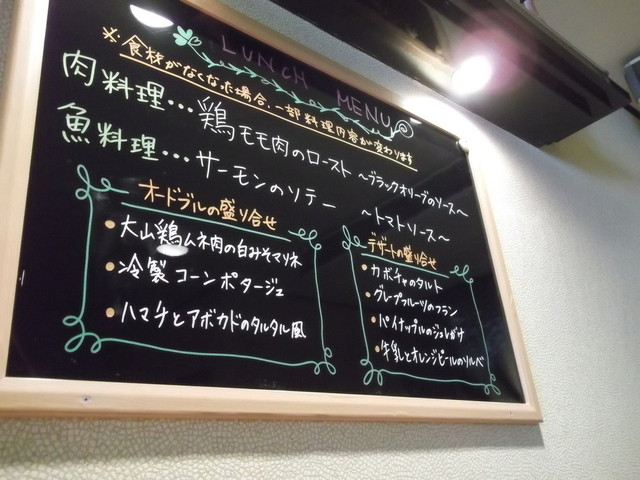 LUNCH MENU
※食材がなくなった場合、一部料理内容が変わります
肉料理…鶏モモ肉のロースト ～ブラックオリーブのソース～
魚料理…サーモンのソテー ～トマトソース～
オードブルの盛り合せ
•大山鶏ムネ肉の白みそマリネ
•冷製コーンポタージュ
•ハマチとアボカドのタルタル風
デザートの盛り合せ
•カボチャのタルト
•グレープフルーツのフラン
•パイナップルのジュレがけ
•牛乳とオレンジピールのソルベ